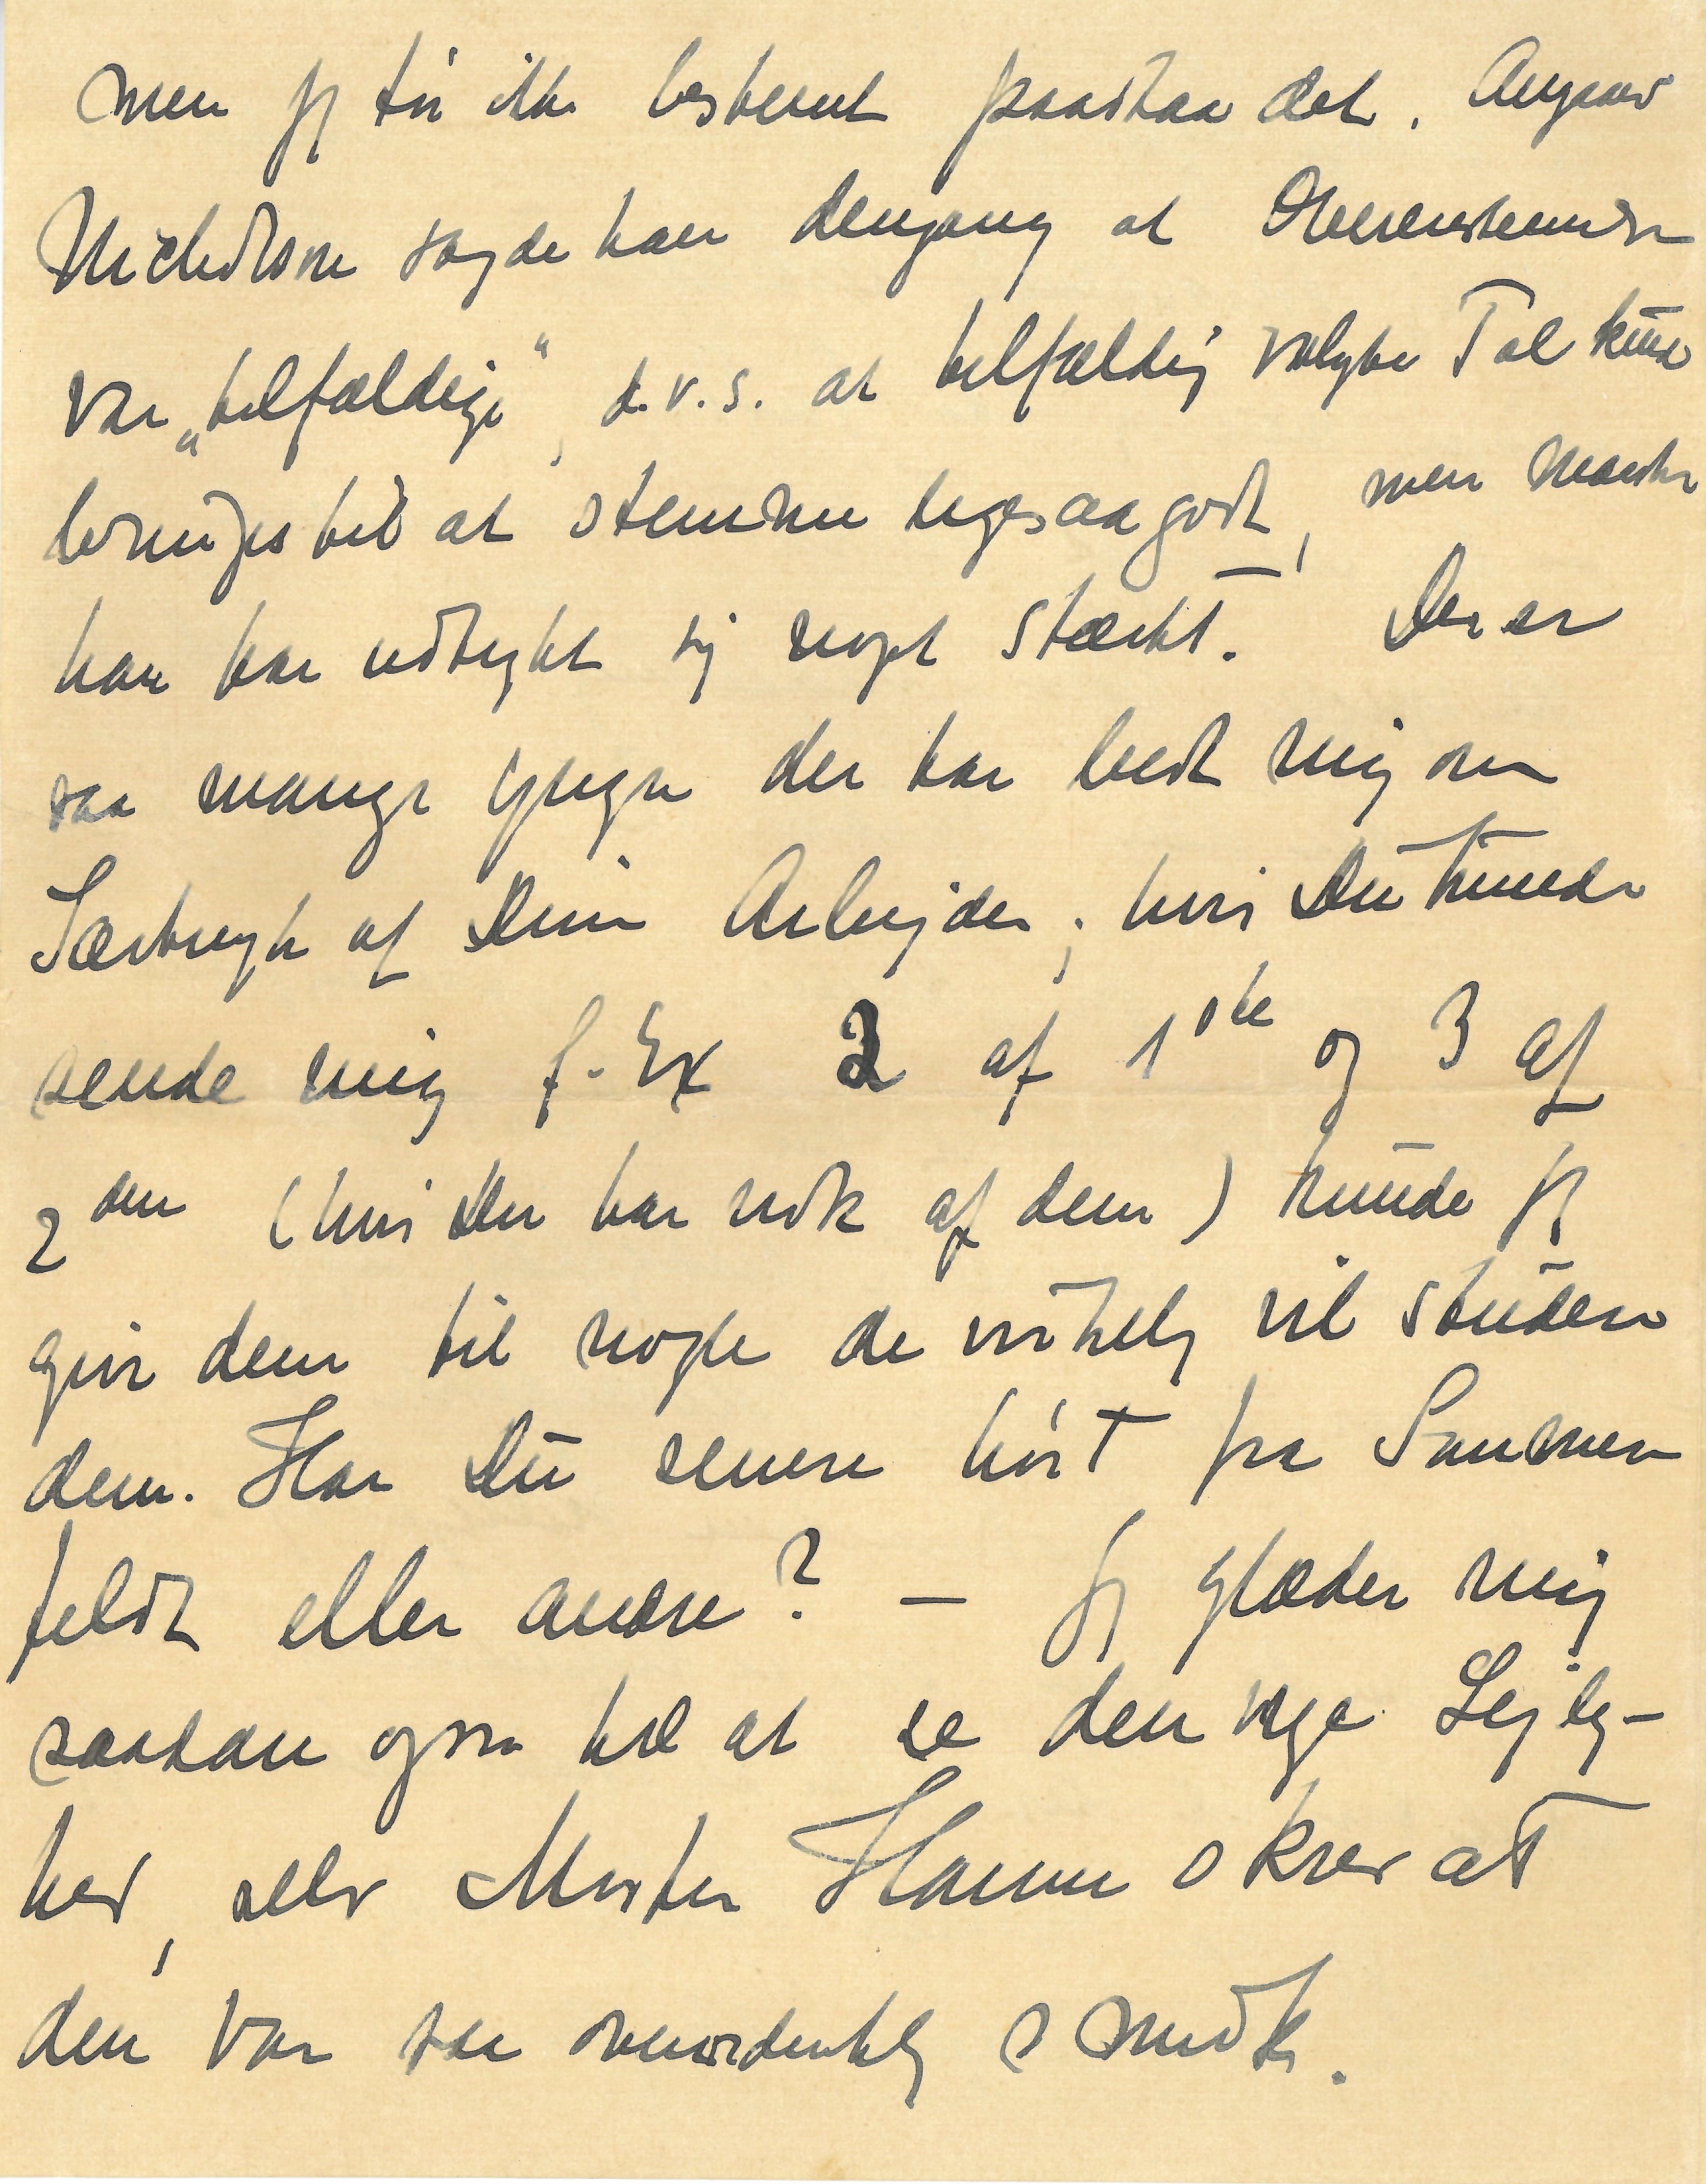 men jeg tør ikke bestemt paastaa det. Angaaende
Nicholson sagde han dengang at Overensstemmelsen
var „tilfældige", d.v.s. at tilfældig valgte Tal kunde
bringes til at stemme ligesaa godt, men maaske
han har udtrykt sig noget stærkt. Der er
saa mange fysikere der har bedt mig om
Særtryk af Dine Arbejder; hvis Du kunde
sende mig f. Ex 2 af 1ste og 3 af
2den (hvis Du har nok af dem) kunde jeg
give dem til nogle de virkelig vil studere
dem. Har Du senere hørt fra Sommer
feldt eller andre? — Jeg glæder mig
saadan ogsaa til at se den nye Lejlig-
hed, selv Moster Hanne skrev at
den var saa overordentlig smuk.